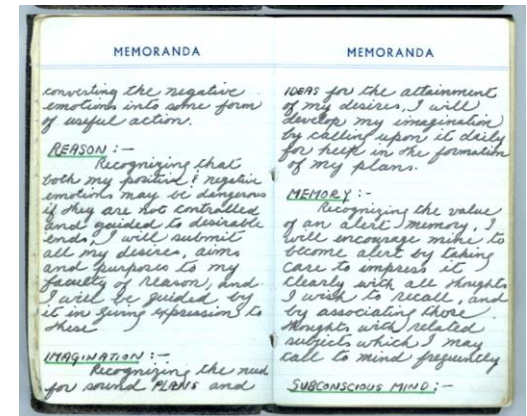 MEMORANDA
converting the negative
emotions into some form
of useful action.
REASON :-
Recognizing that
both my positive & negative
emotions may be dangerous
if they are not controlled
and guided to desirable
ends, I will submit
all my desires, aims
and purposes to my
faculty of reason, and
I will be guided by
it in giving expression to
these
IMAGINATION :-
Recognizing the need
for sound PLANS and
MEMORANDA
IDEAS for the attainment
of my desires, I will
develop my imagination
by calling upon it daily
for help in the formation
of my plans.
MEMORY :-
Recognizing the value
of an alert memory, I
will encourage mine to
become alert by taking
care to impress it
clearly with all thoughts
I wish to recall, and
by associating those
thoughts with related
subjects which I may
call to mind frequently
SUBCONSCIOUS MIND :-